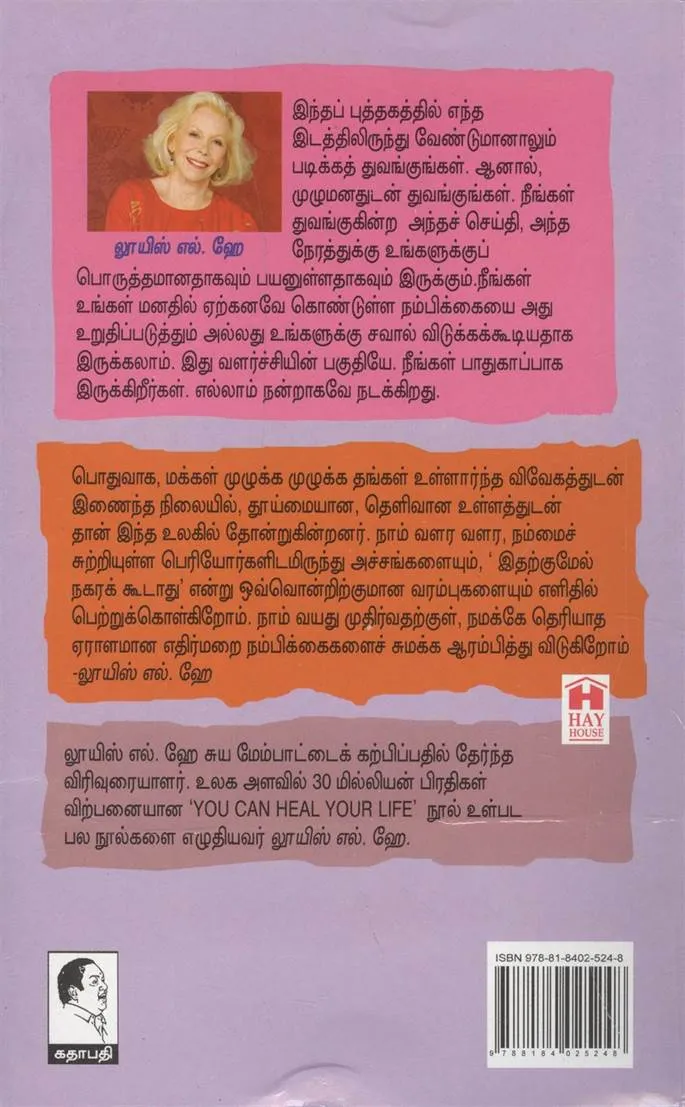 இந்தப் புத்தகத்தில் எந்த
இடத்திலிருந்து வேண்டுமானாலும்
படிக்கத் துவங்குங்கள். ஆனால்,
முழுமனதுடன் துவங்குங்கள். நீங்கள்
துவங்குகின்ற அந்தச் செய்தி, அந்த
நேரத்துக்கு உங்களுக்குப்
லூயிஸ் எல். ஹே
பொருத்தமானதாகவும் பயனுள்ளதாகவும் இருக்கும்.நீங்கள்
உங்கள் மனதில் ஏற்கனவே கொண்டுள்ள நம்பிக்கையை அது
உறுதிப்படுத்தும் அல்லது உங்களுக்கு சவால் விடுக்கக்கூடியதாக
இருக்கலாம். இது வளர்ச்சியின் பகுதியே. நீங்கள் பாதுகாப்பாக
இருக்கிறீர்கள். எல்லாம் நன்றாகவே நடக்கிறது.
பொதுவாக, மக்கள் முழுக்க முழுக்க தங்கள் உள்ளார்ந்த விவேகத்துடன்
இணைந்த நிலையில், தூய்மையான, தெளிவான உள்ளத்துடன்
தான் இந்த உலகில் தோன்றுகின்றனர். நாம் வளர வளர, நம்மைச்
சுற்றியுள்ள பெரியோர்களிடமிருந்து அச்சங்களையும், ‘ இதற்குமேல்
நகரக் கூடாது’ என்று ஒவ்வொன்றிற்குமான வரம்புகளையும் எளிதில்
பெற்றுக்கொள்கிறோம். நாம் வயது முதிர்வதற்குள், நமக்கே தெரியாத
ஏராளமான எதிர்மறை நம்பிக்கைகளைச் சுமக்க ஆரம்பித்து விடுகிறோம்
-லூயிஸ் எல். ஹே
HAY
HOUSE
லூயிஸ் எல். ஹே சுய மேம்பாட்டைக் கற்பிப்பதில் தேர்ந்த
விரிவுரையாளர். உலக அளவில் 30 மில்லியன் பிரதிகள்
விற்பனையான ‘YOU CAN HEAL YOUR LIFE’ நூல் உள்பட
பல நூல்களை எழுதியவர் லூயிஸ் எல். ஹே.
கதாபதி
ISBN 978-81-8402-524-8
9 788184 025248